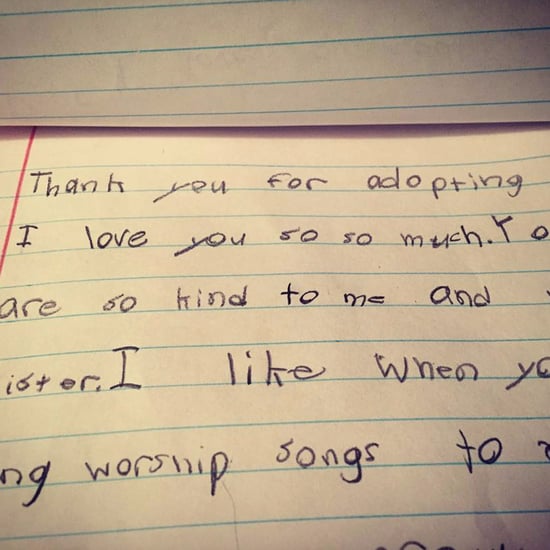 Thank you for adopting
I love you so so much. Yo
are so kind to me and
ister. I like when yo
ng worship songs to